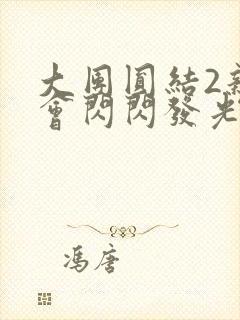 大團圓結2新
會閃閃發光
馮唐